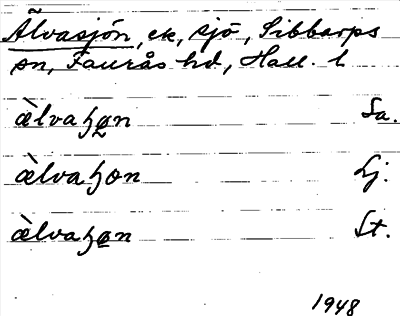 Älvasjön, ek, sjö, Sibbarps
sn, Faurås hd, Hall. l
ælvaɧøn Sa.
ælvaɧon Lj.
ælvaɧøn St.
1948